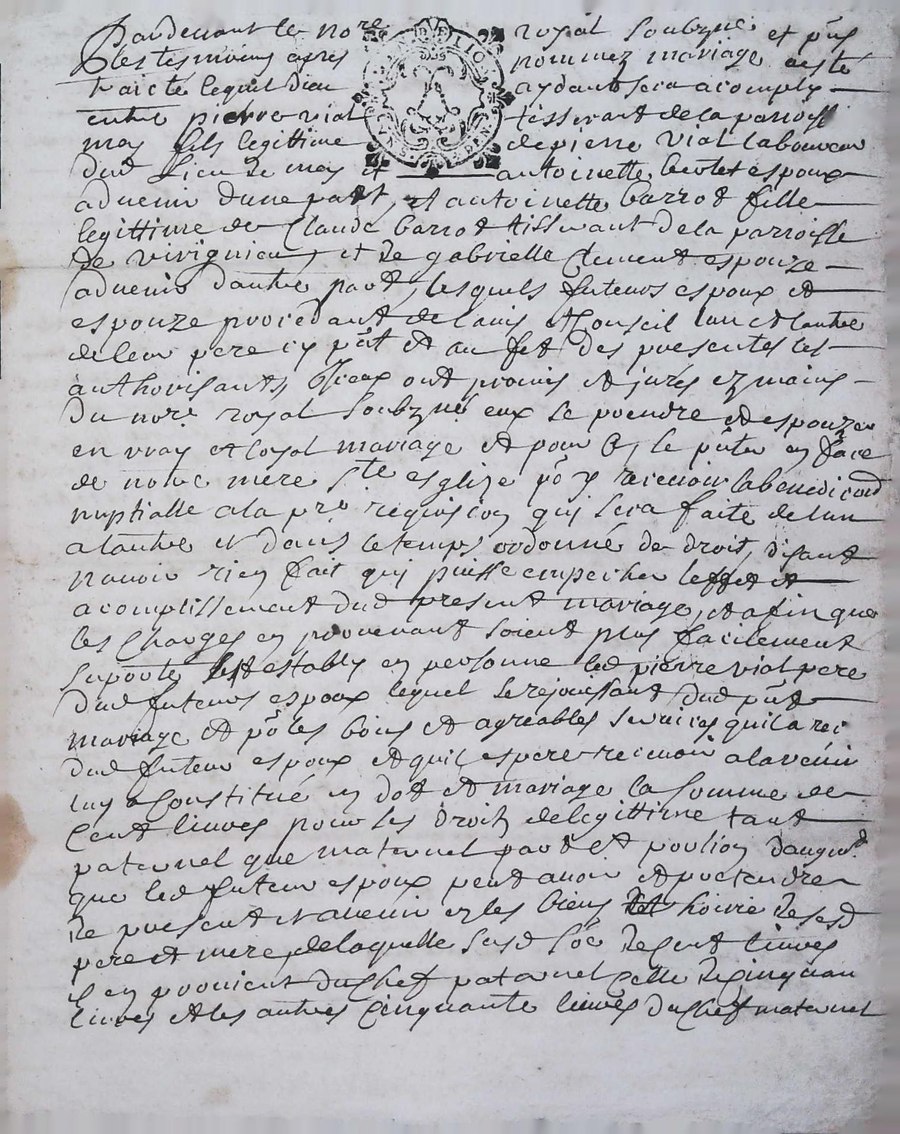 Pardevant le no.re royal soubzne et pns
les tesmoins apres nommez mariage a esté
traicté lequel dieu aydant sera acomply
entre pierre vial tisserant de la parroisse
may fils legittime de pierre vial laboureur
dud lieu de may et antoinette berlot espoux
aduenir dune part, et antoinette barrot fille
legittime de Claude barrot tisserant de la parroisse
de virignieu, et de gabrielle Clement espouze
aduenir dautre part, lesquels futeurs espoux et
espouze procedant de lauis et Conseil lun et lautre
de leur pere icy pnt et au fet des presentes les
authorisants, Iceux ont promis et jurés ez mains
du nore royal soubzné eux se prendre et espouzer
en vray et loyal mariage et pour le pnter en face
de notre mere ste esglize po y receuoir la benediction
nuptialle a la pre requision quy sera faite de lun
a lautre et dans le temps ordonné de droit, disant
nauoir rien fait quy puisse empecher leffet et
acomplissement dud present mariage, et afin que
les Charges en prouenant soient plus facilement
suporté est estably en personne led pierre vial pere
dud futeur espoux lequel se rejouissant dud pnt
mariage et po les bons et agreables seruices quil a rec
dud futeur espoux et quil espere receuoir a laduenir
luy a Constitué en dot et mariage la somme de
Cent liures pour les droits de legittime tant
paternel que maternel part et portion daugmt
que led futeur espoux peut auoir et pretendre
de present et auenir ez les biens et hoirie de sesd
pere et mere, de laquelle susd soe de Cent liures
il en prouient du Chef paternel Celle de Cinquan
liures et les autres Cinquante liures du Chef maternel